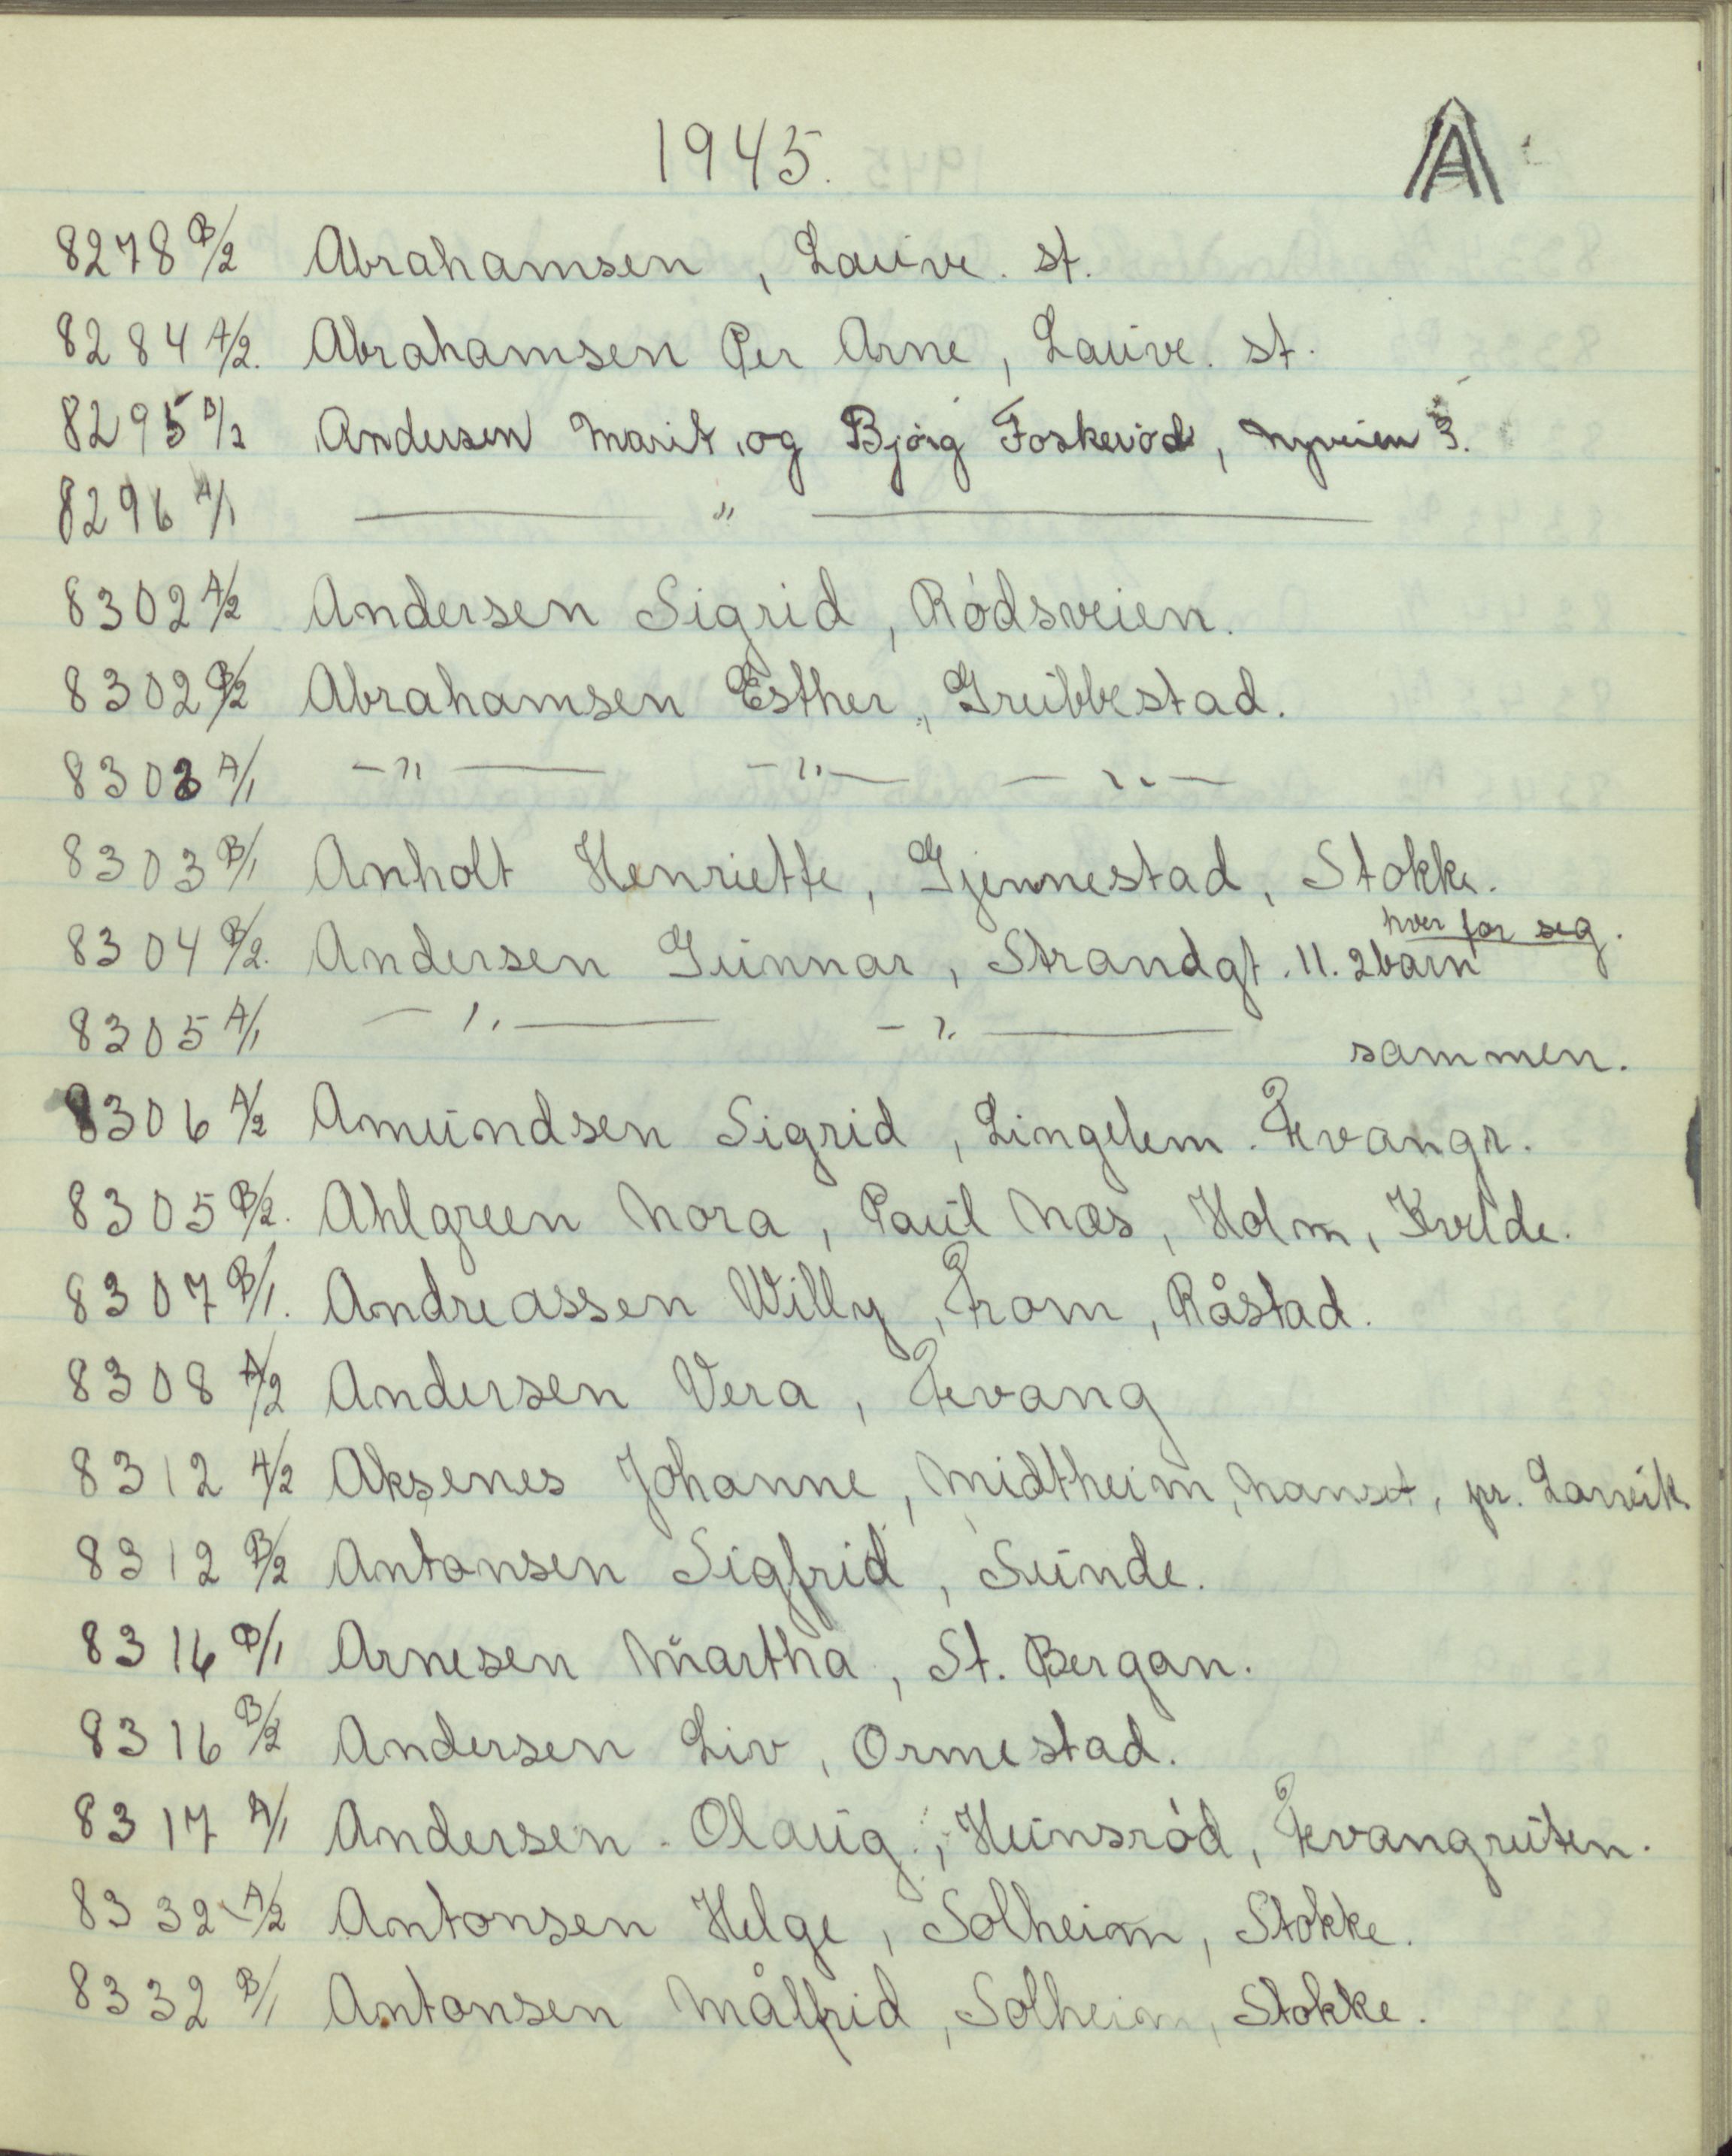 1945.
A
8278 B/2 Abrahamsen , Lauve. st.
8284 A/2. Abrahamsen Per Arne, Lauve. st.
8295 B/2 Andersen Marit og Bjørg Foskeröd, Nyveien 3.
8296 A/1 — " —
8302 A/2 Andersen Sigrid, Ródsveien.
8302 B/2 Abrahamsen Esther, Grubbestad.
8303 A/1 — " — — " — — " —
8303 B/1 Anholt Henriette, Gjennestad, Stokke.
hver for seg.
8304 B/2. Andersen Gunnar, Strandgt. 11. 2 barn
8305 A/1 — " — — " — sammen.
8306 A/2 Amundsen Sigrid, Lingelem. Fevangr.
8305 B/2. Ahlgreen Nora, Paul Næs, Holm, Kvelde.
8307 B/1. Andreassen Willy, Fram, Råstad.
8308 A/2 Andersen Vera, Fevang
8312 A/2 Aksenes Johanne, Midtheim, Nanset, pr. Larvik.
8312 B/2 Antonsen Sigfrid, Sunde.
8316 B/1 Arnesen Martha, St. Bergan.
8316 B/2 Andersen Liv, Ormestad.
8317 A/1 Andersen Olaug, Hunsród, Fevangruten.
8332 A/2 Antonsen Helge, Solheim, Stokke.
8332 B/1 Antonsen Målfrid, Solheim, Stokke.